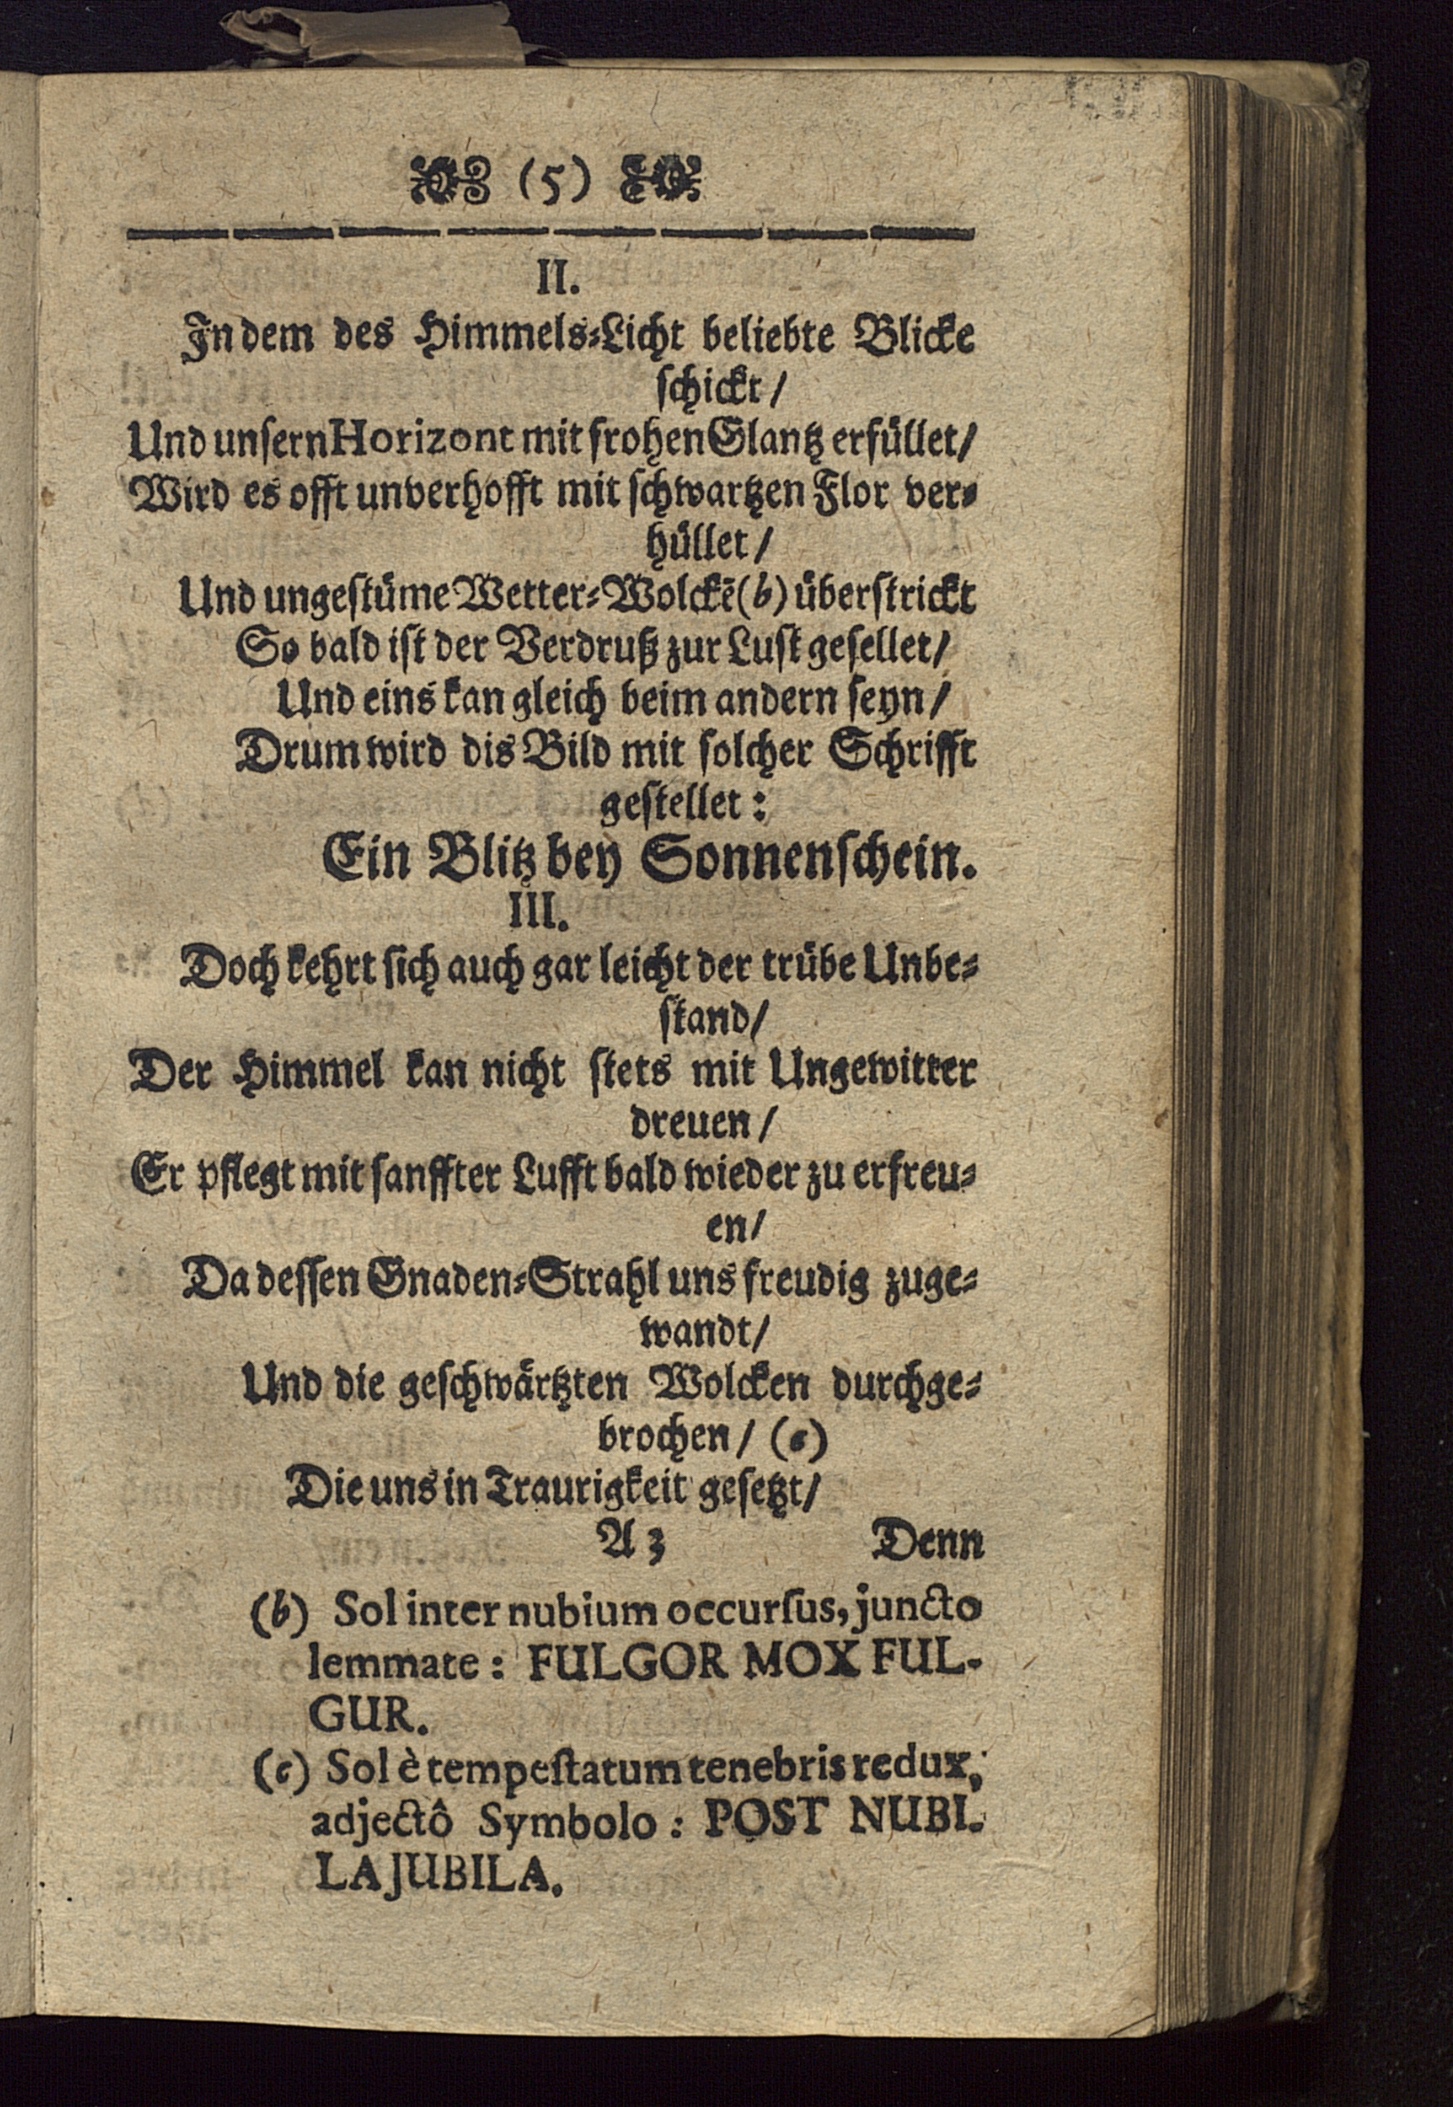 (5)
II.
In dem des Himmels-Licht beliebte Blicke
schickt /
Und unsern Horizont mit frohen Glantz erfüllet /
Wird es offt unverhofft mit schwartzen Flor ver-
hüllet /
Und ungestüme Wetter-Wolckē (b) überstrickt
So bald ist der Verdruß zur Lust gesellet /
Und eins kan gleich beim andern seyn /
Drum wird dis Bild mit solcher Schrifft
gestellet :
Ein Blitz bey Sonnenschein.
III.
Doch kehrt sich auch gar leicht der trübe Unbe-
stand /
Der Himmel kan nicht stets mit Ungewitter
dreuen /
Er pflegt mit sanffter Lufft bald wieder zu erfreu-
en /
Da dessen Gnaden-Strahl uns freudig zuge-
wandt /
Und die geschwärtzten Wolcken durchge-
brochen / (c)
Die uns in Traurigkeit gesetzt /
A 3 Denn
(b) Sol inter nubium occurſus, juncto
lemmate : FULGOR MOX FUL-
GUR.
(c) Sol è tempeſtatum tenebris redux,
adjectô Symbolo : POST NUBI-
LA JUBILA.